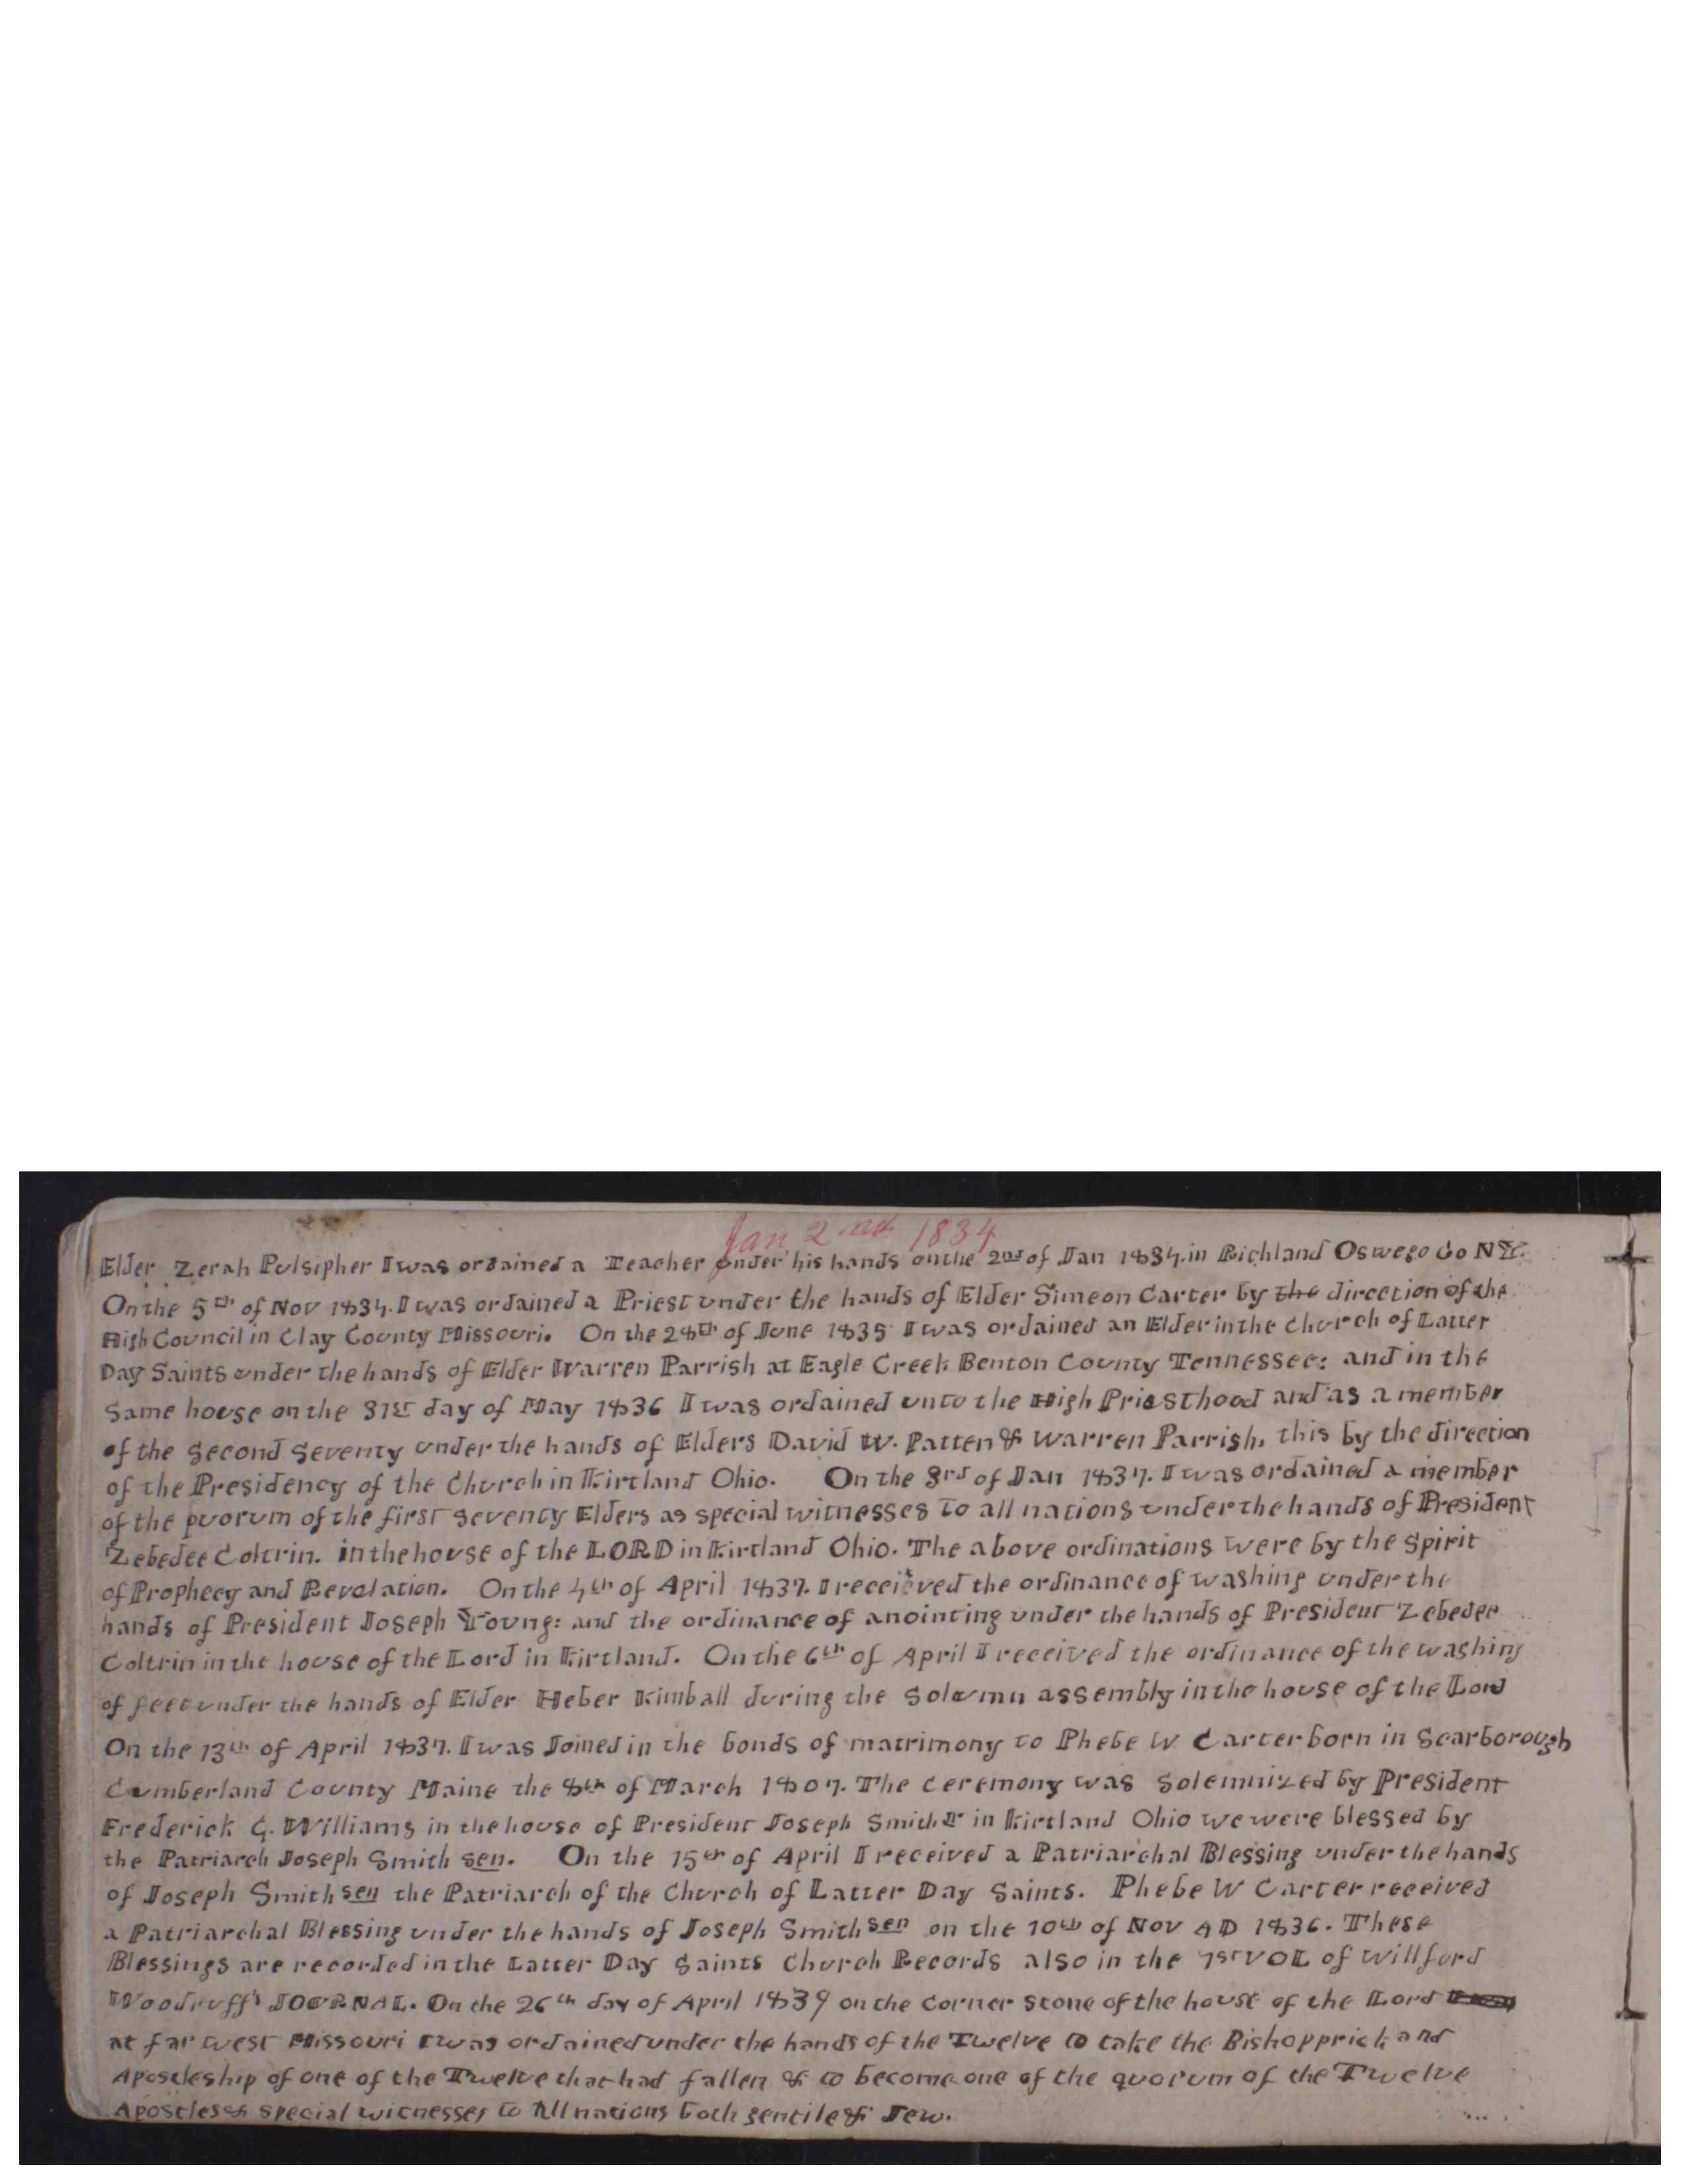 Jan 2nd 1834
Elder Zerah Pulsipher I was ordained a Teacher under his hands on the 2nd of Jan 1834. in Richland Oswego Co NY.
On the 5th of Nov 1834. I was ordained a Priest under the hands of Elder Simeon Carter by the direction of the
High Council in Clay County Missouri. On the 28th of June 1835 I was ordained an Elder in the Church of Latter
Day Saints under the hands of Elder Warren Parrish at Eagle Creek Benton County Tennessee: and in the
Same house on the 31st day of May 1836 I was ordained unto the High Priesthood and as a member
of the Second Seventy under the hands of Elders David W. Patten & Warren Parrish, this by the direction
of the Presidency of the Church in Kirtland Ohio. On the 3rd of Jan 1837. I was ordained a member
of the puorum of the first seventy Elders as special witnesses to all nations under the hands of President
Zebedee Coltrin. in the house of the LORD in Kirtland Ohio. The above ordinations were by the Spirit
of Prophecy and Revelation. On the 4th of April 1837. I received the ordinance of washing under the
hands of President Joseph Young: and the ordinance of anointing under the hands of President Zebedee
Coltrin in the house of the Lord in Kirtland. On the 6th of April I received the ordinance of the washing
of feet under the hands of Elder Heber Kimball during the Solemn assembly in the house of the Lord
On the 13th of April 1837. I was Joined in the bonds of matrimony to Phebe W Carter born in Scarborough
Cumberland County Maine the 8th of March 1807. The ceremony was Solemnized by President
Frederick G. Williams in the house of President Joseph Smith Jr in Kirtland Ohio we were blessed by
the Patriarch Joseph Smith sen. On the 15th of April I received a Patriarchal Blessing under the hands
of Joseph Smith sen the Patriarch of the Church of Latter Day Saints. Phebe W Carter received
a Patriarchal Blessing under the hands of Joseph Smith sen on the 10th of Nov AD 1836. These
Blessings are recorded in the Latter Day Saints Church Records also in the 1st VOL of Willford
Woodruff's JOURNAL. On the 26th day of April 1839 on the Corner Stone of the house of the Lord
at far west Missouri I was ordained under the hands of the Twelve to take the Bishopprick and
Apostleship of one of the Twelve that had fallen & to become one of the quorum of the Twelve
Apostles & special witnesses to All nations both gentile & Jew.